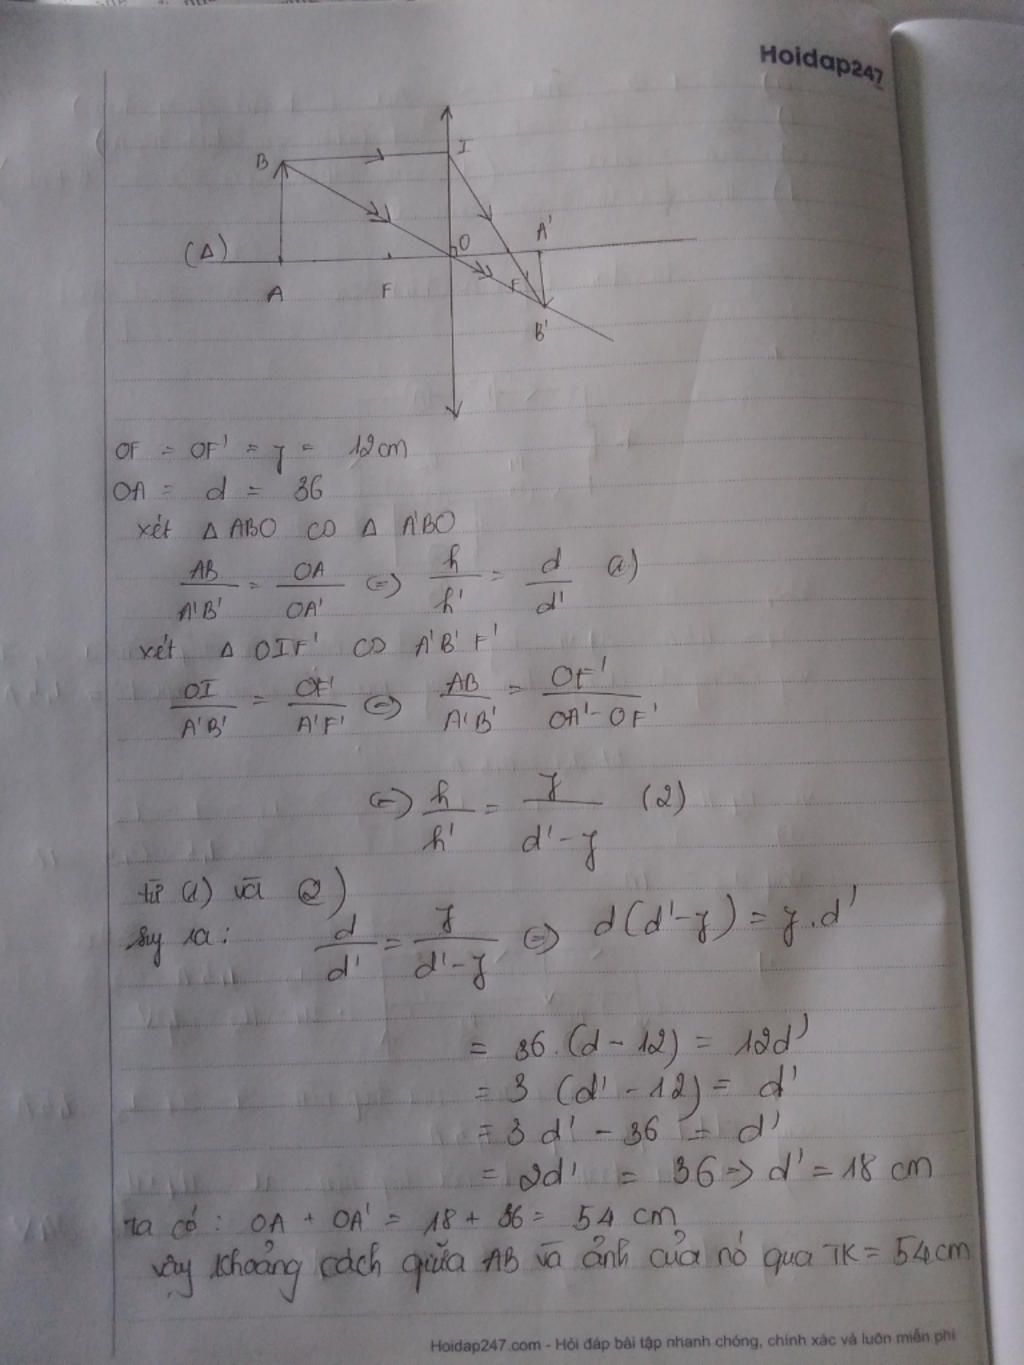 Hoidap247
B
I
(Δ)
O
A'
A
F
F
B'
OF = OF' = f = 12cm
OA = d = 36
xét Δ ABO ∽ Δ A'BO
AB/A'B' = OA/OA' <=> h/h' = d/d' (1)
xét Δ OIF' ∽ A'B'F'
OI/A'B' = OF'/A'F' <=> AB/A'B' = OF'/OA'-OF'
<=> h/h' = f/d'-f (2)
từ (1) và (2)
suy ra: d/d' = f/d'-f <=> d(d'-f) = f.d'
= 36.(d-12) = 12d'
= 3 (d'-12) = d'
= 3d' - 36 = d'
= 2d' = 36 => d' = 18 cm
ta có: OA + OA' = 18 + 36 = 54 cm
vậy khoảng cách giữa AB và ảnh của nó qua TK = 54cm
Hoidap247.com - Hỏi đáp bài tập nhanh chóng, chính xác và luôn miễn phí